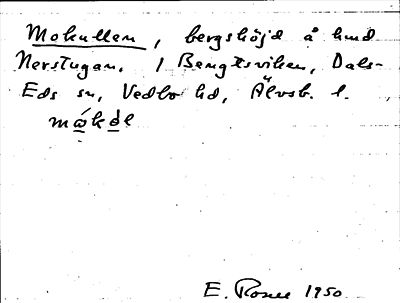 Mokullen, bergshöjd å hmd
Nerstugan, i Bengtsviken, Dals-
Eds sn, Vedbo hd, Älvsb. l.
måkdl
E. Rosell 1950